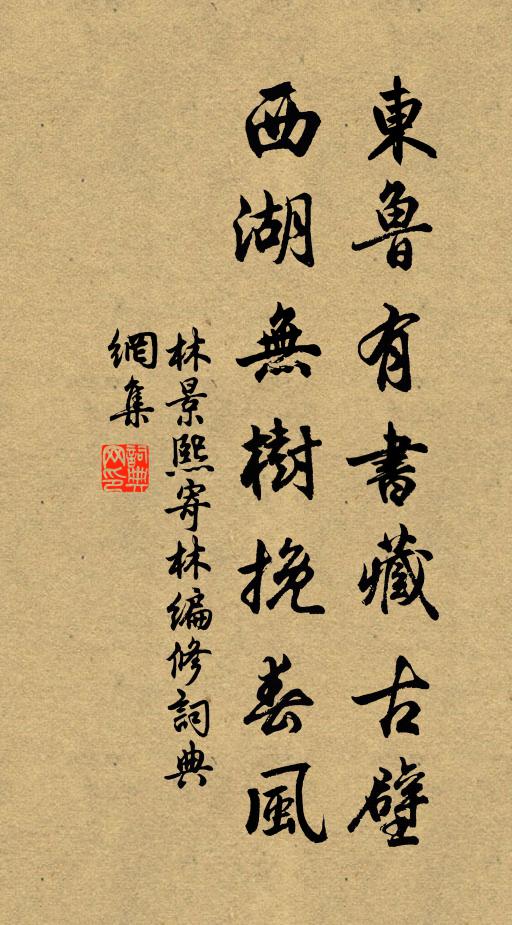 東魯有書藏古壁
西湖無樹挽春風
林景熙寄林編修詞典
網集
詞典
网印